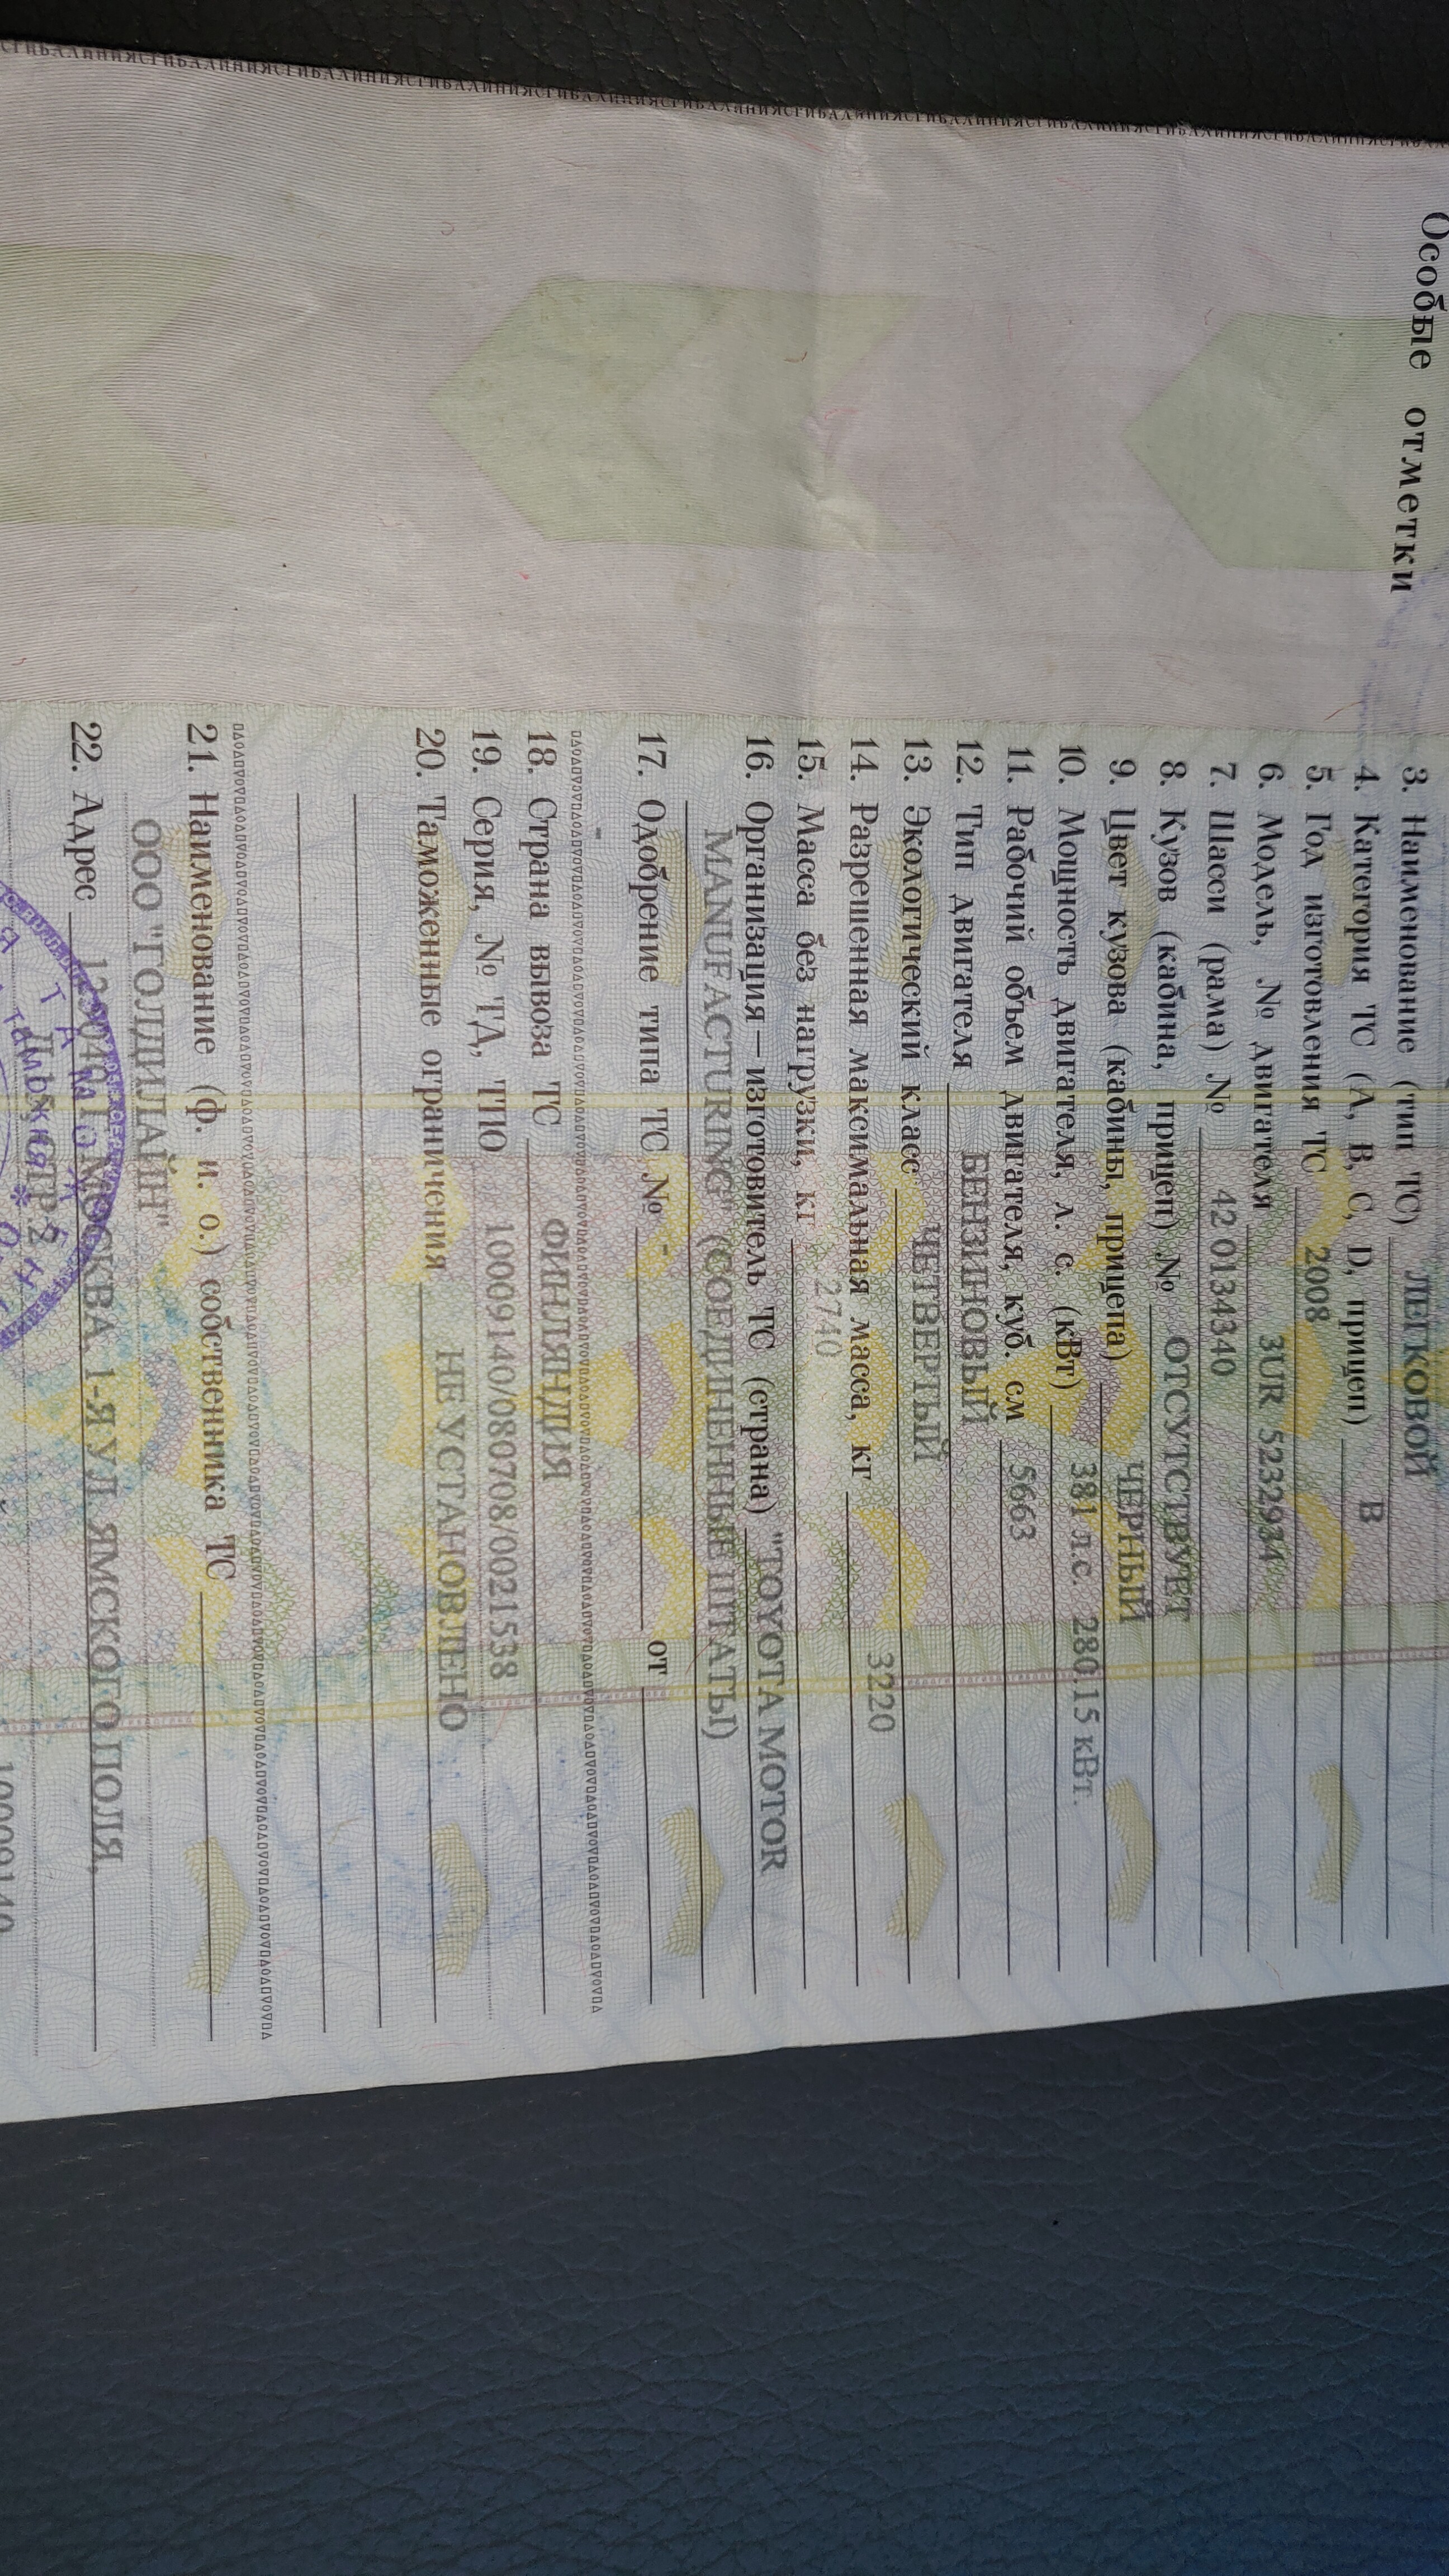 Особые отметки
3. Наименование (тип ТС) ЛЕГКОВОЙ
4. Категория ТС (А, В, С, D, прицеп) В
5. Год изготовления ТС 2008
6. Модель, № двигателя 3UR 5232934
7. Шасси (рама) № 42 0134340
8. Кузов (кабина, прицеп) № ОТСУТСТВУЕТ
9. Цвет кузова (кабины, прицепа) ЧЕРНЫЙ
10. Мощность двигателя, л. с. (кВт) 381 л.с. 280.15 кВт.
11. Рабочий объем двигателя, куб. см 5663
12. Тип двигателя БЕНЗИНОВЫЙ
13. Экологический класс ЧЕТВЕРТЫЙ
14. Разрешенная максимальная масса, кг 3220
15. Масса без нагрузки, кг 2740
16. Организация—изготовитель ТС (страна) "TOYOTA MOTOR
MANUFACTURING" (СОЕДИНЕННЫЕ ШТАТЫ)
17. Одобрение типа ТС № - от
18. Страна вывоза ТС ФИНЛЯНДИЯ
19. Серия, № ТД, ТПО 10009140/080708/0021538
20. Таможенные ограничения НЕ УСТАНОВЛЕНО
21. Наименование (ф. и. о.) собственника ТС
ООО "ГОЛДИЛАЙН"
22. Адрес МОСКВА, 1-Я УЛ. ЯМСКОГО ПОЛЯ,